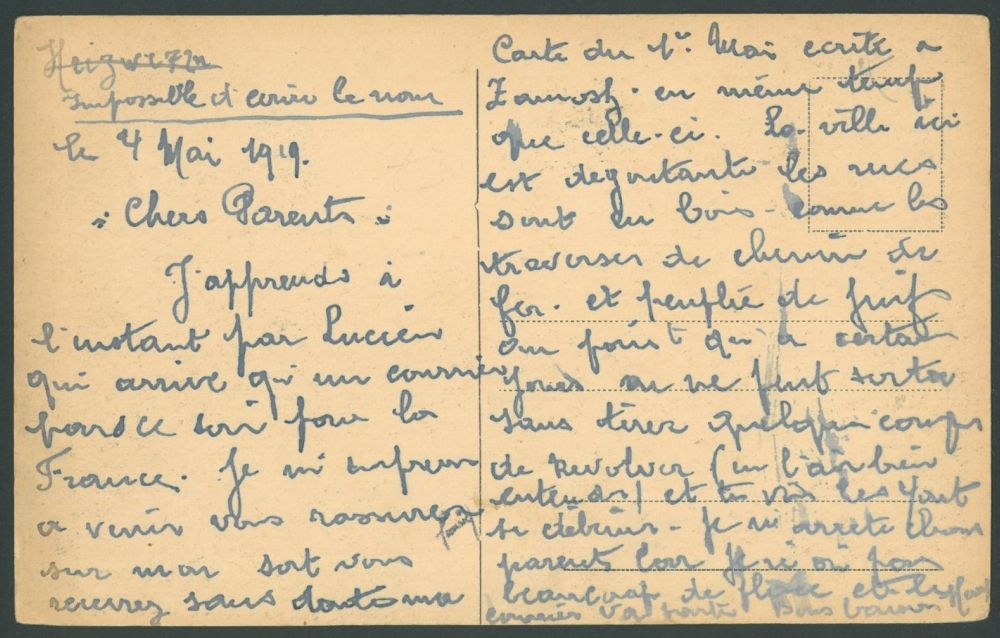 Impossible d'ecrire le nom
le 4 Mai 1919.
"Chers Parents"
J'apprends à
l'instant par Lucien
qui arrive qu'un courrier
pars ce soir pour la
France. Je m'empresse
a venir vous rassurer
sur mon sort vous
recevrez sans doute ma
Carte du 1er Mai ecrite a
Zamosk. en même temps
que celle-ci. La ville ici
est degoutante les rues
sont en bois - comme les
traverses de chemin de
fer. et peuplée de juifs
au point qu'a certain
jours on ne peut sortir
sans tirer quelques coups
de revolver (en l'air bien
entendu) et tu vois les
se - Je m'arrete chers
parents car je n'ai pas
beaucoup de place et le
courrier va partir Bons baisers